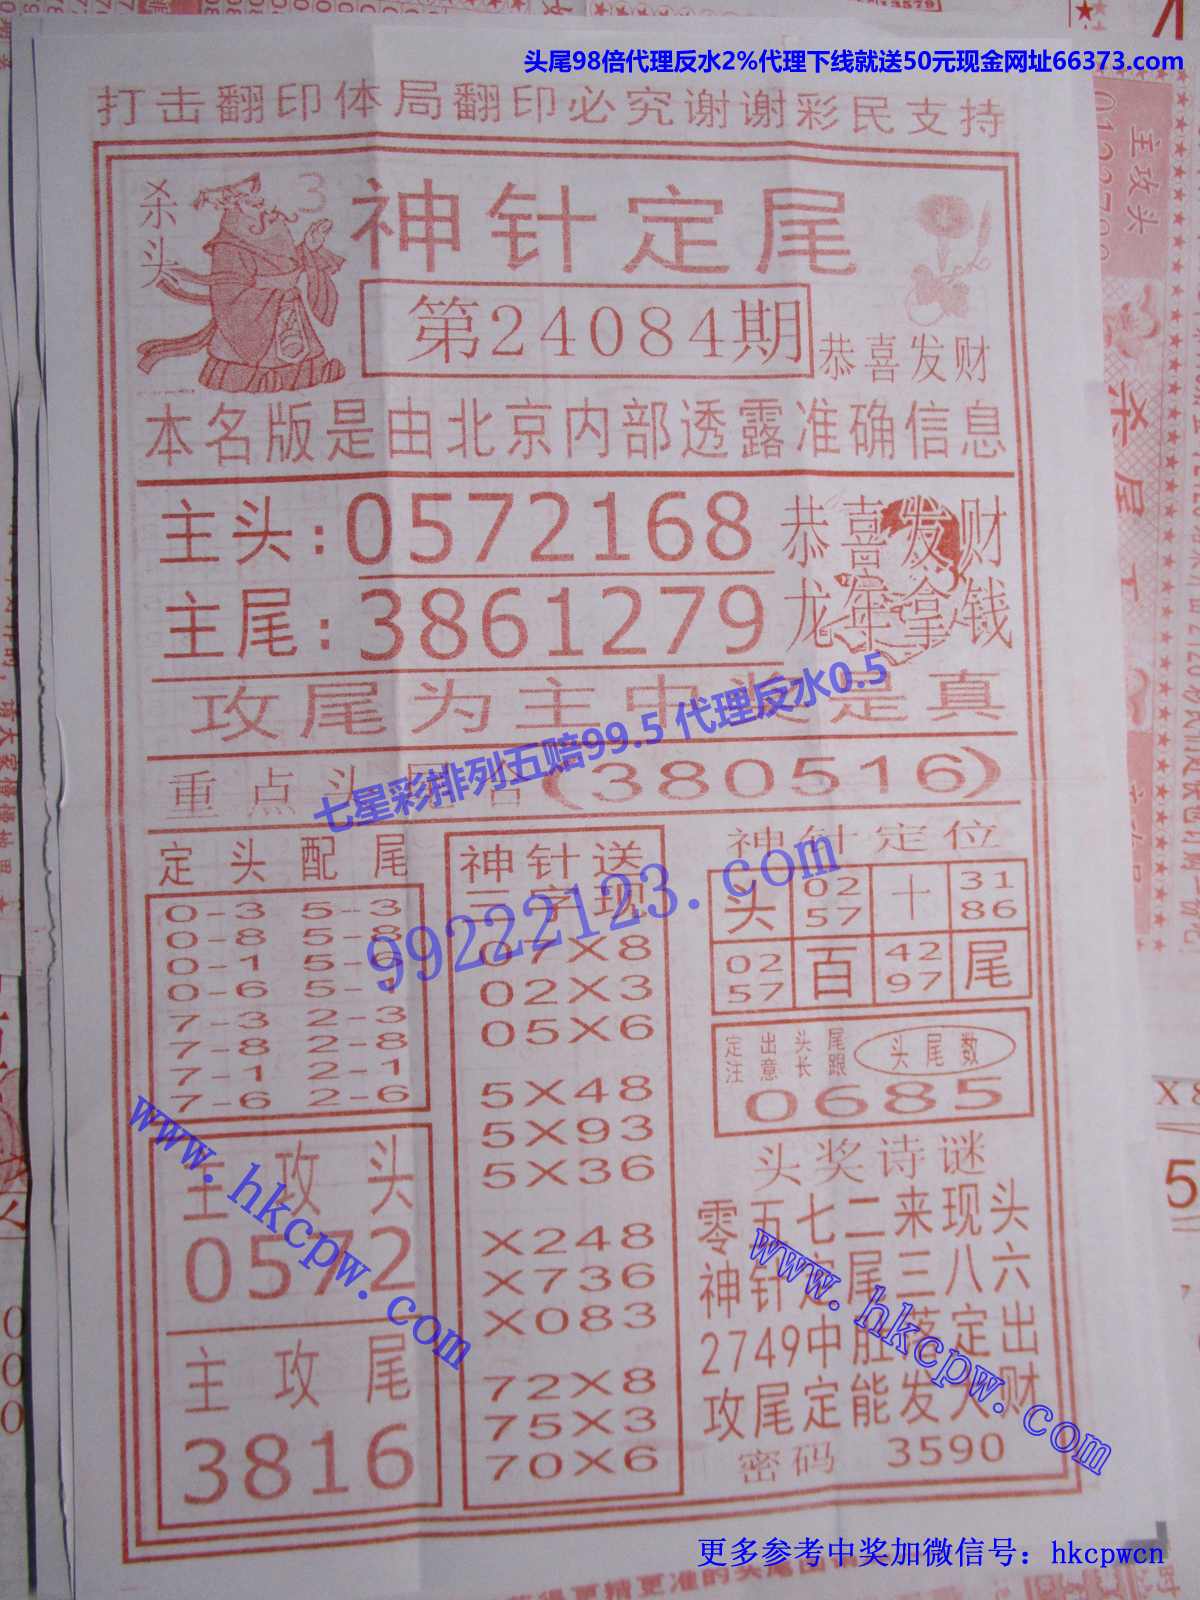 头尾98倍代理反水2%代理下线就送50元现金网址66373.com
打击翻印体局翻印必究谢谢彩民支持
杀头 3
神针定尾
第24084期
恭喜发财
本名版是由北京内部透露准确信息
主头:0572168
恭喜发财
主尾:3861279
龙年拿钱
攻尾为主中奖是真
七星彩排列五赔99.5 代理反水0.5
重点头尾合(380516)
定头配尾
0-3 5-3
0-8 5-8
0-1 5-6
0-6 5-1
7-3 2-3
7-8 2-8
7-1 2-1
7-6 2-6
主攻头
0572
主攻尾
3816
神针送
三字现
07X8
02X3
05X6
5X48
5X93
5X36
X248
X736
X083
72X8
75X3
70X6
99222123.com
神针定位
头 02 57 十 31 86
02 57 百 42 97 尾
定出头尾
注意长跟
头尾数
0685
头奖诗谜
零五七二来现头
神针定尾三八六
2749中胜落定出
攻尾定能发大财
密码 3590
www.hkcpw.com
www.hkcpw.com
更多参考中奖加微信号：hkcpwcn
主攻头
杀尾